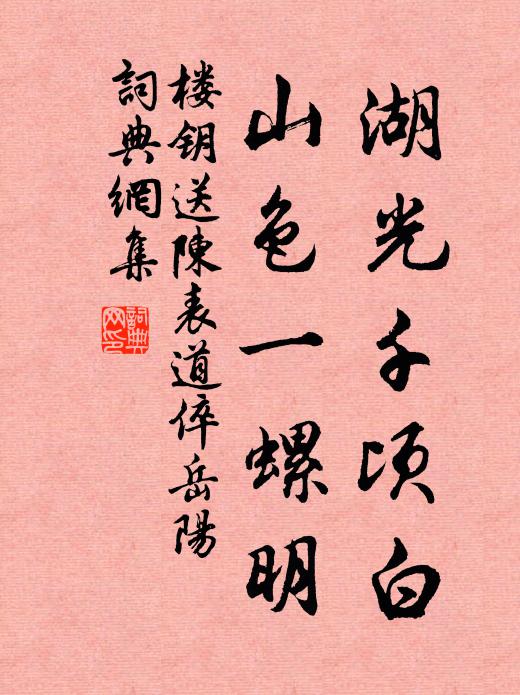 湖光千頃白
山色一螺明
楼钥送陳表道倅岳陽
詞典網集
詞典网印